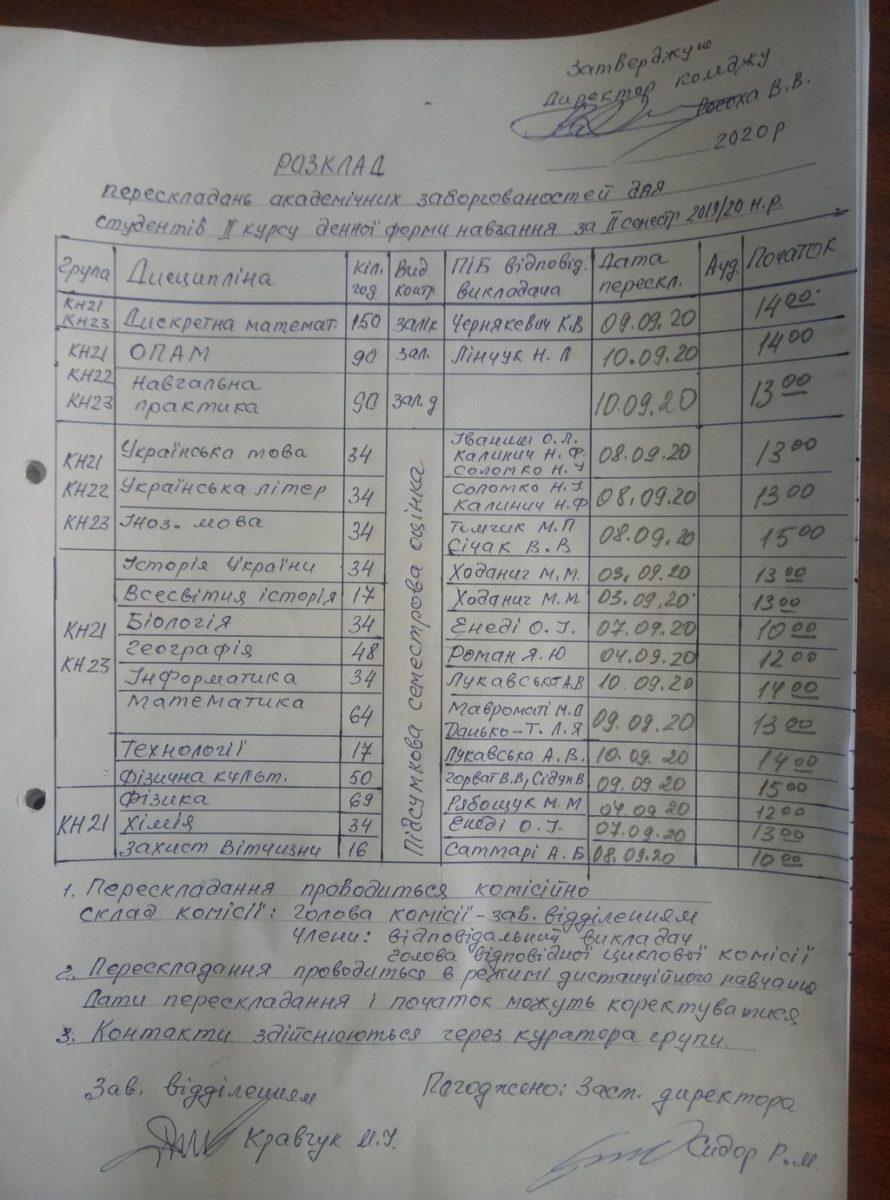 Затверджую
Директор коледжу
Росоха В.В.
2020р
РОЗКЛАД
перескладань академічних заборгованостей для
студентів ІІ курсу денної форми навчання за ІІ семестр 2019/20 н.р.
Група Дисципліна Кіл. год Вид контр ПІБ відповід. викладача Дата перескл. Ауд. Початок
КН21 КН23 Дискретна математ. 150 залік Чернякевич К.В 09.09.20 14 00
КН21 ОПАМ 90 зал. Лінчук Н.П 10.09.20 14 00
КН22
КН23 Навчальна практика 90 зал. д 10.09.20 13 00
КН21 Українська мова 34 Іваниш О.Л. Калинич Н.Ф. Соломко Н.І 08.09.20 13 00
КН22 Українська літер 34 Соломко Н.І Калинич Н.Ф 08.09.20 13 00
КН23 Іноз. мова 34 Тимчик М.П Січак В.В 08.09.20 15 00
Підсумкова семестрова оцінка
Історія України 34 Ходанич М.М. 03.09.20 13 00
Всесвітня історія 17 Ходанич М.М 03.09.20 13 00
КН21 Біологія 34 Енеді О.І. 07.09.20 10 00
КН23 Географія 48 Роман Я.Ю 04.09.20 12 00
Інформатика 34 Лукавська А.В 10.09.20 14 00
Математика 64 Мавроматі М.Д Данько-Т.Л.Я 09.09.20 13 00
Технології 17 Лукавська А.В. 10.09.20 14 00
Фізична культ. 50 Горват В.В, Сідун В 09.09.20 15 00
Фізика 69 Рябощук М.М 04.09.20 12 00
КН21 Хімія 34 Енеді О.І. 07.09.20 13 00
Захист Вітчизни 16 Саттарі А.Б 08.09.20 10 00
1. Перескладання проводиться комісійно
склад комісії: голова комісії - зав. відділенням
члени: відповідальний викладач
голова відповідної циклової комісії
2. Перескладання проводиться в режимі дистанційного навчання
Дати перескладання і початок можуть коректуватися
3. Контакти здійснюються через куратора групи.
Зав. відділенням Погоджено: Заст. директора
Кравчук М.І. Сидор Р.М.